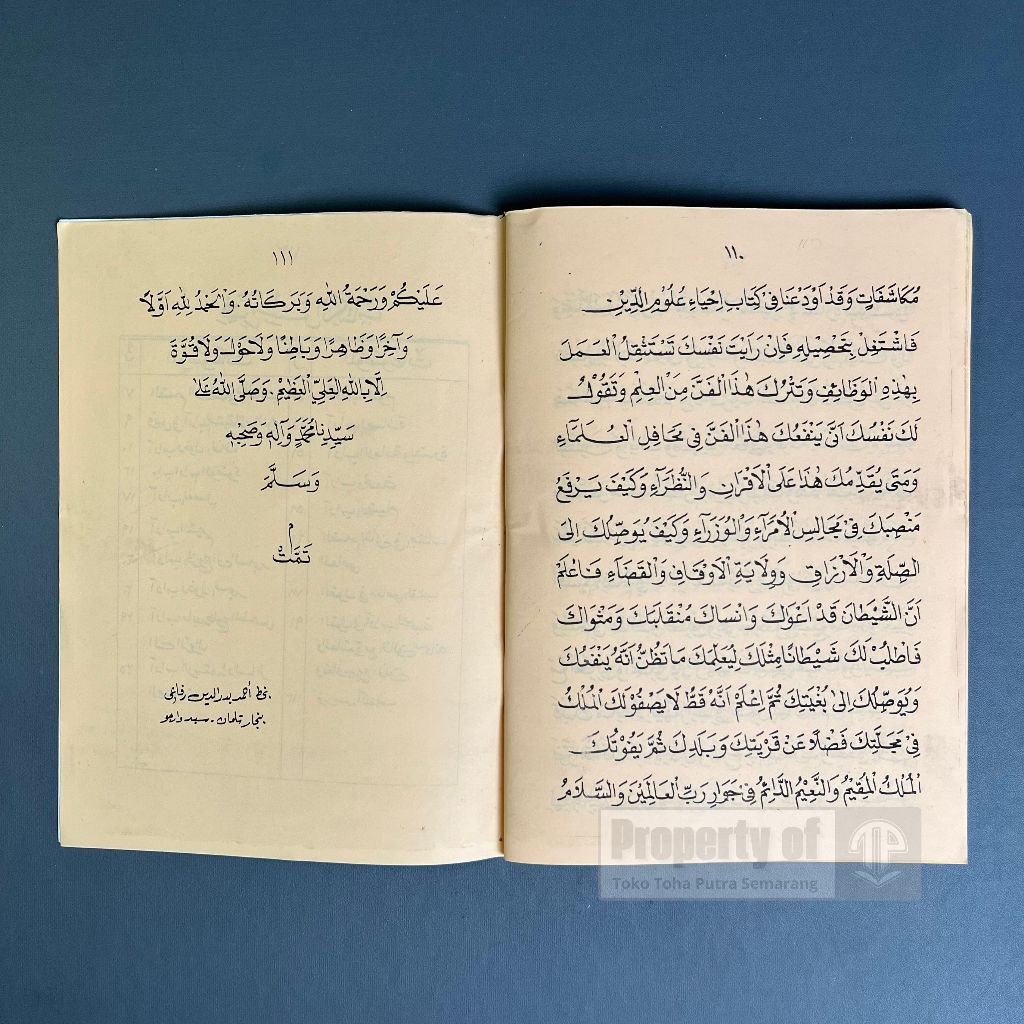 ١١٠
مُكَاشَفَاتٍ وَقَدْ اَوْدَعْنَا فِيْ كِتَابِ اِحْيَاءِ عُلُوْمِ الدِّيْنِ
فَاشْتَغِلْ بِتَحْصِيْلِهِ فَاِنْ رَاَيْتَ نَفْسَكَ تَسْتَثْقِلُ الْعَمَلَ
بِهٰذِهِ الْوَظَائِفِ وَتَتْرُكَ هٰذَا الْفَنَّ مِنَ الْعِلْمِ وَتَقُوْلُ
لَكَ نَفْسُكَ اَنَّى يَنْفَعُكَ هٰذَا الْفَنُّ فِى مَحَافِلِ الْعُلَمَآءِ
وَمَتَى يُقَدِّمُكَ هٰذَا عَلَى الْاَقْرَانِ وَالنُّظَرَآءِ وَكَيْفَ يَرْفَعُ
مَنْصِبَكَ فِيْ مَجَالِسِ الْاُمَرَآءِ وَالْوُزَرَآءِ وَكَيْفَ يُوَصِّلُكَ اِلَى
الصِّلَةِ وَالْاَرْزَاقِ وَوِلَايَةِ الْاَوْقَافِ وَالْقَضَآءِ فَاعْلَمْ
اَنَّ الشَّيْطَانَ قَدْ اَغْوَاكَ وَانْسَاكَ مُنْقَلَبَكَ وَمَثْوَاكَ
فَاطْلُبْ لَكَ شَيْطَانًا مِثْلَكَ لِيُعَلِّمَكَ مَا تَظُنُّ اَنَّهُ يَنْفَعُكَ
وَيُوَصِّلُكَ اِلَى بُغْيَتِكَ ثُمَّ اِعْلَمْ اَنَّهُ قَطُّ لَا يَصْفُوْلَكَ الْمُلْكُ
فِيْ مَحَلَّتِكَ فَضْلًا عَنْ قَرْيَتِكَ وَبَلَدِكَ ثُمَّ يَفُوْتُكَ
الْمُلْكُ الْمُقِيْمُ وَالنَّعِيْمُ الدَّائِمُ فِيْ جَوَارِ رَبِّ الْعَالَمِيْنَ وَالسَّلَامُ
١١١
عَلَيْكُمْ وَرَحْمَةُ اللّٰهِ وَبَرَكَاتُهُ. وَالْحَمْدُ لِلّٰهِ اَوَّلًا
وَآخِرًا وَظَاهِرًا وَبَاطِنًا وَلَا حَوْلَ وَلَا قُوَّةَ
اِلَّا بِاللّٰهِ الْعَلِيِّ الْعَظِيْمِ. وَصَلَّى اللّٰهُ عَلَى
سَيِّدِنَا مُحَمَّدٍ وَآلِهِ وَصَحْبِهِ
وَسَلَّمَ
م
تَمَّتْ
بخط أحمد بدر الدين رفاعي
بنجار تلهان - سيدوارجو
Property of
Toko Toha Putra Semarang